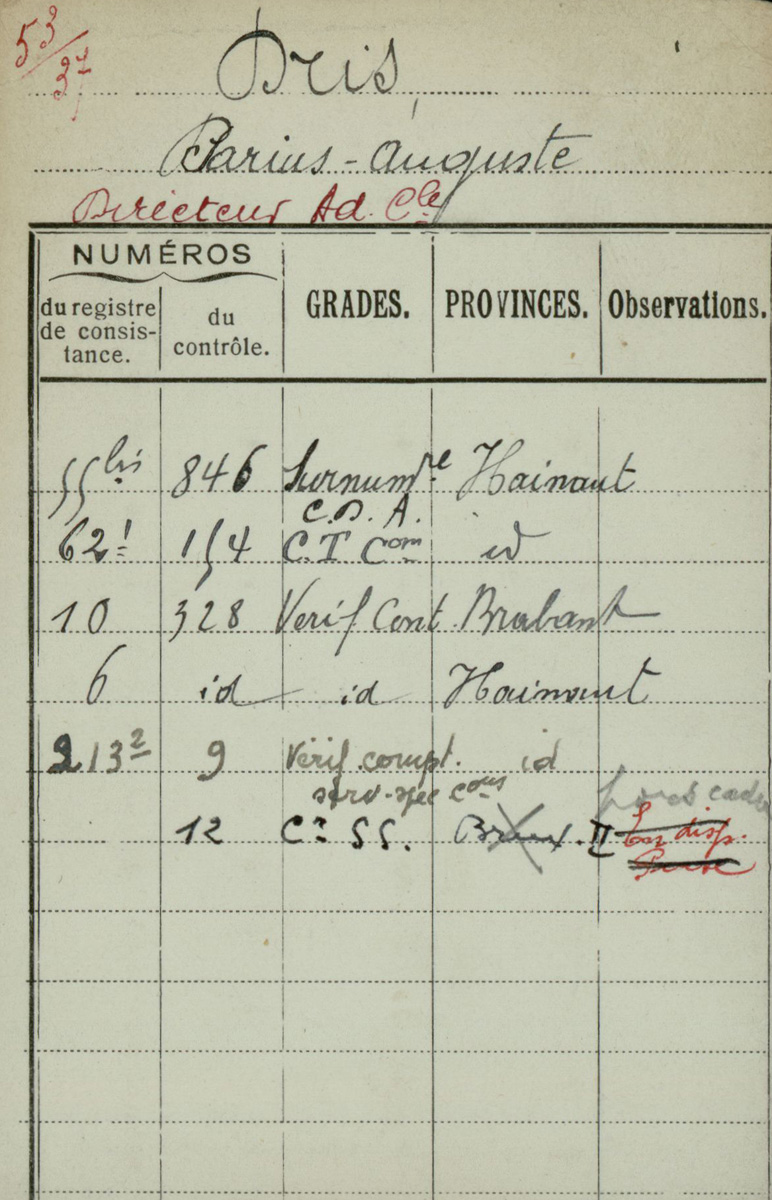 53/37
Dris
Darius-Auguste
Directeur Ad. Cle
NUMÉROS
du registre de consis-tance.
du contrôle.
GRADES.
PROVINCES.
Observations.
55bis 846 Surnumre Hainaut
C.D.A.
62! 154 C.T Com id
10 328 Verif Cont Brabant
6 id id Hainaut
213² 9 Vérif. compt. id
serv-spec Cons hors cadre
12 Cr SS. Brux. II En disp.